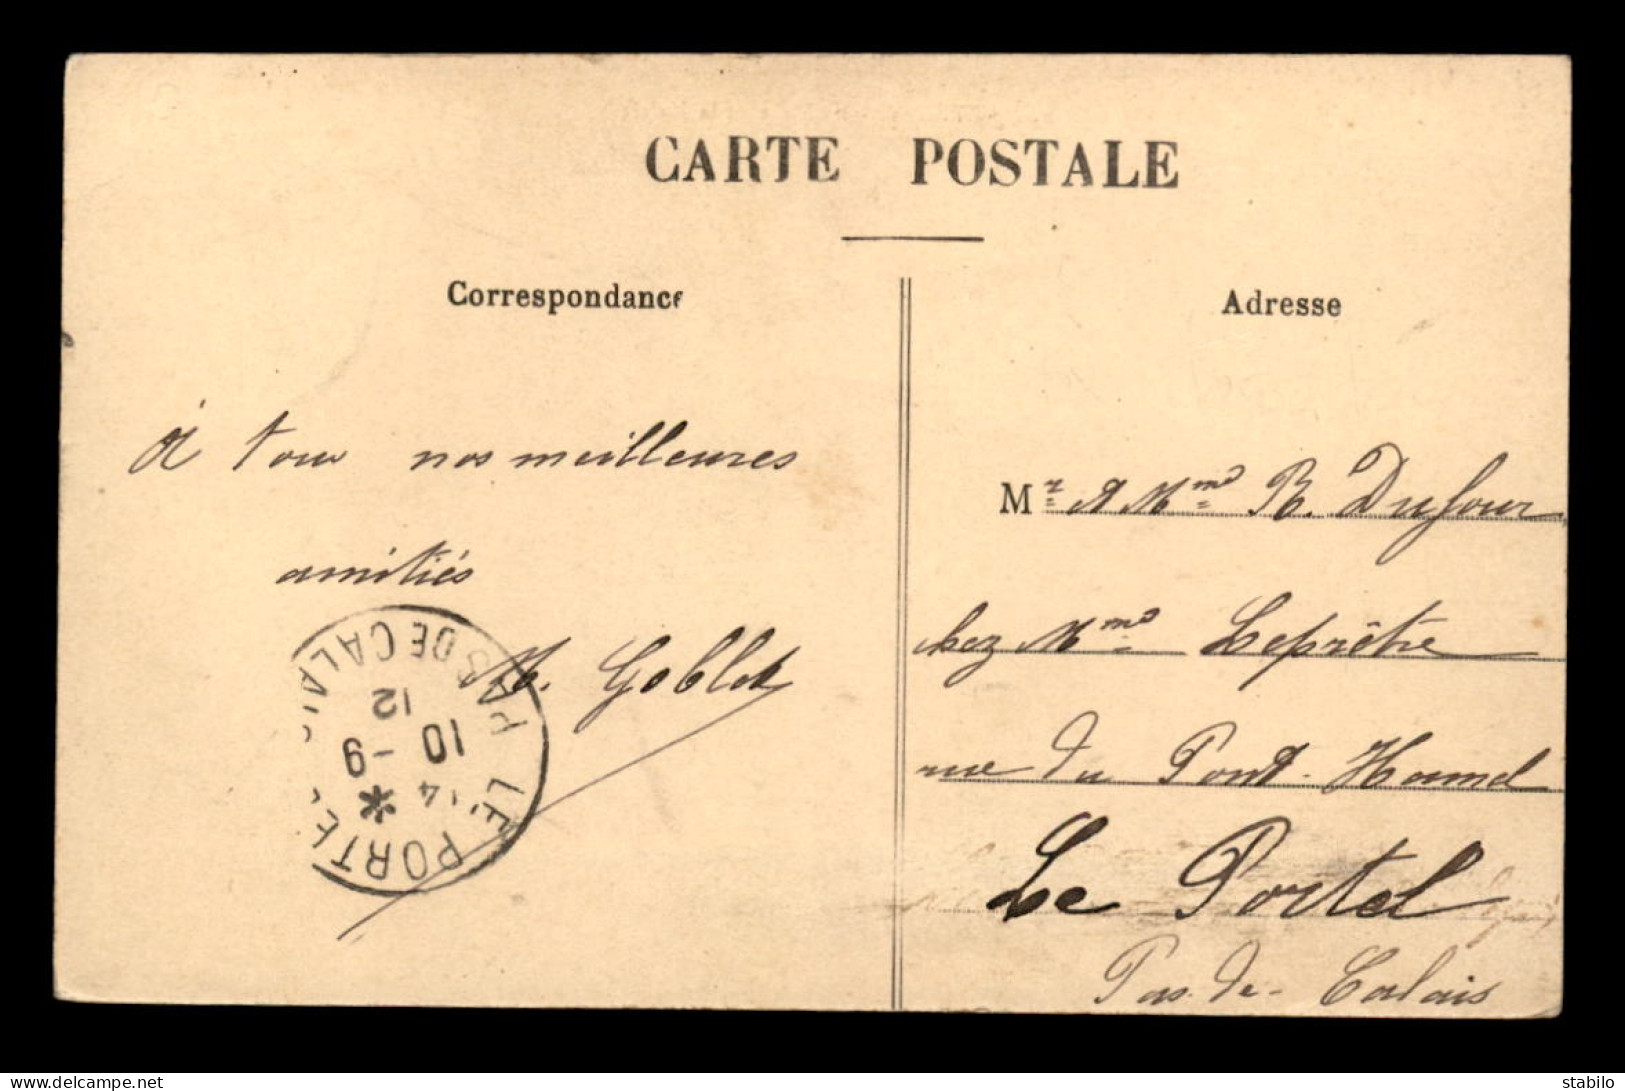 CARTE POSTALE
Correspondance
Adresse
à tous nos meilleures
amitiés
M. Goblet
Mr & Mme R. Dufour
chez Mme Leprêtre
rue du Pont-Hamel
Le Portel
Pas-de-Calais
LE PORTEL
PAS DE CALAIS
14 *
10 - 9
12
delcampe.net
stabilo